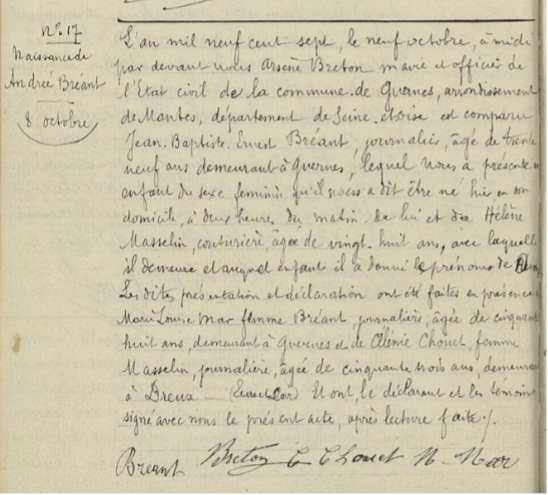 N° 17
Naissance de
Andrée Bréant
8 octobre
L'an mil neuf cent sept, le neuf octobre, à midi
par devant nous Arsène Breton maire et officier de
l'Etat civil de la commune de Guernes, arrondissement
de Mantes, département de Seine-et-oise est comparu
Jean-Baptiste Ernest Bréant, journalier, âgé de trente
neuf ans demeurant à Guernes, lequel nous a présenté
enfant du sexe féminin qu'il nous a dit être né hier en son
domicile, à deux heures du matin de lui et de Hélène
Masselin, couturière âgée de vingt-huit ans, avec laquelle
il demeure et auquel enfant il a donné le prénoms de
Les dites présentation et déclaration ont été faites en présence
Marie Louise Mar femme Bréant, journalière, âgée de cinquante
huit ans, demeurant à Guernes et de Clénie Chouet, femme
Masselin, journalière, âgée de cinquante trois ans, demeurant
à Dreux Et ont, le déclarant et les témoins
signé avec nous le présent acte, après lecture faite ./.
Breant Breton C Chouet Mar